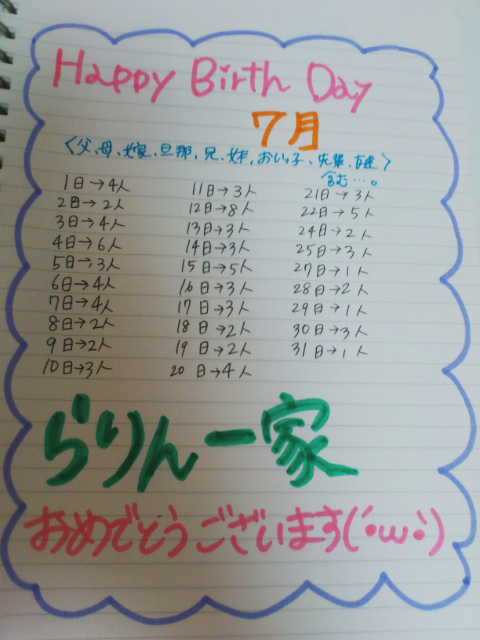 Happy Birth Day
7月
〈父、母、嫁、旦那、兄、妹、おいっ子、先輩、友達〉
含む…。
1日→4人
2日→2人
3日→4人
4日→6人
5日→3人
6日→4人
7日→4人
8日→2人
9日→2人
10日→3人
11日→3人
12日→8人
13日→3人
14日→3人
15日→5人
16日→3人
17日→3人
18日→2人
19日→2人
20日→4人
21日→3人
22日→5人
24日→2人
25日→3人
27日→1人
28日→2人
29日→1人
30日→3人
31日→1人
らりん一家
おめでとうございます(´・ω・`)